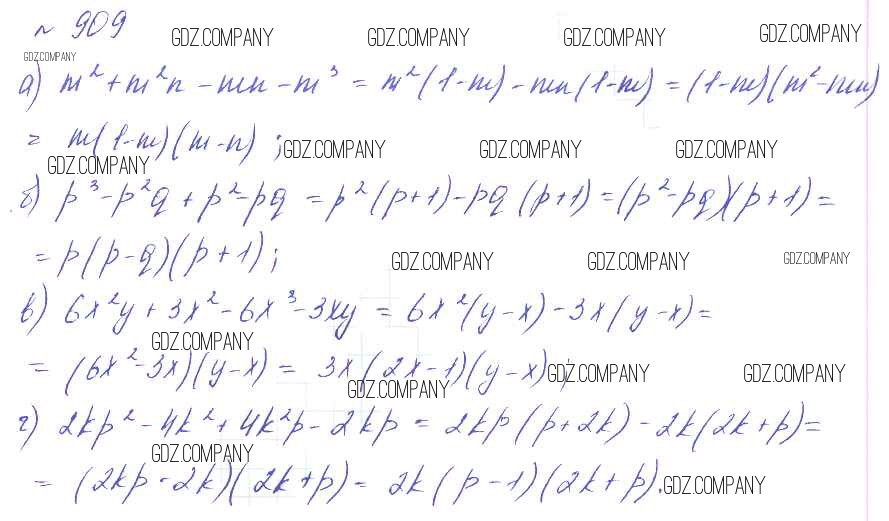 № 909
GDZ.COMPANY GDZ.COMPANY GDZ.COMPANY GDZ.COMPANY
GDZ.COMPANY
а) m² + m²n - mn - m³ = m²(1-m) - mn(1-m) = (1-m)(m²-mn)
= m(1-m)(m-n);
GDZ.COMPANY GDZ.COMPANY GDZ.COMPANY
GDZ.COMPANY
б) p³ - p²q + p² - pq = p²(p+1) - pq(p+1) = (p²-pq)(p+1) =
= p(p-q)(p+1);
GDZ.COMPANY GDZ.COMPANY GDZ.COMPANY
в) 6x²y + 3x² - 6x³ - 3xy = 6x²(y-x) - 3x(y-x) =
GDZ.COMPANY
= (6x²-3x)(y-x) = 3x(2x-1)(y-x);
GDZ.COMPANY GDZ.COMPANY
GDZ.COMPANY
г) 2kp² - 4k² + 4k²p - 2kp = 2kp(p+2k) - 2k(2k+p) =
GDZ.COMPANY
= (2kp-2k)(2k+p) = 2k(p-1)(2k+p).
GDZ.COMPANY